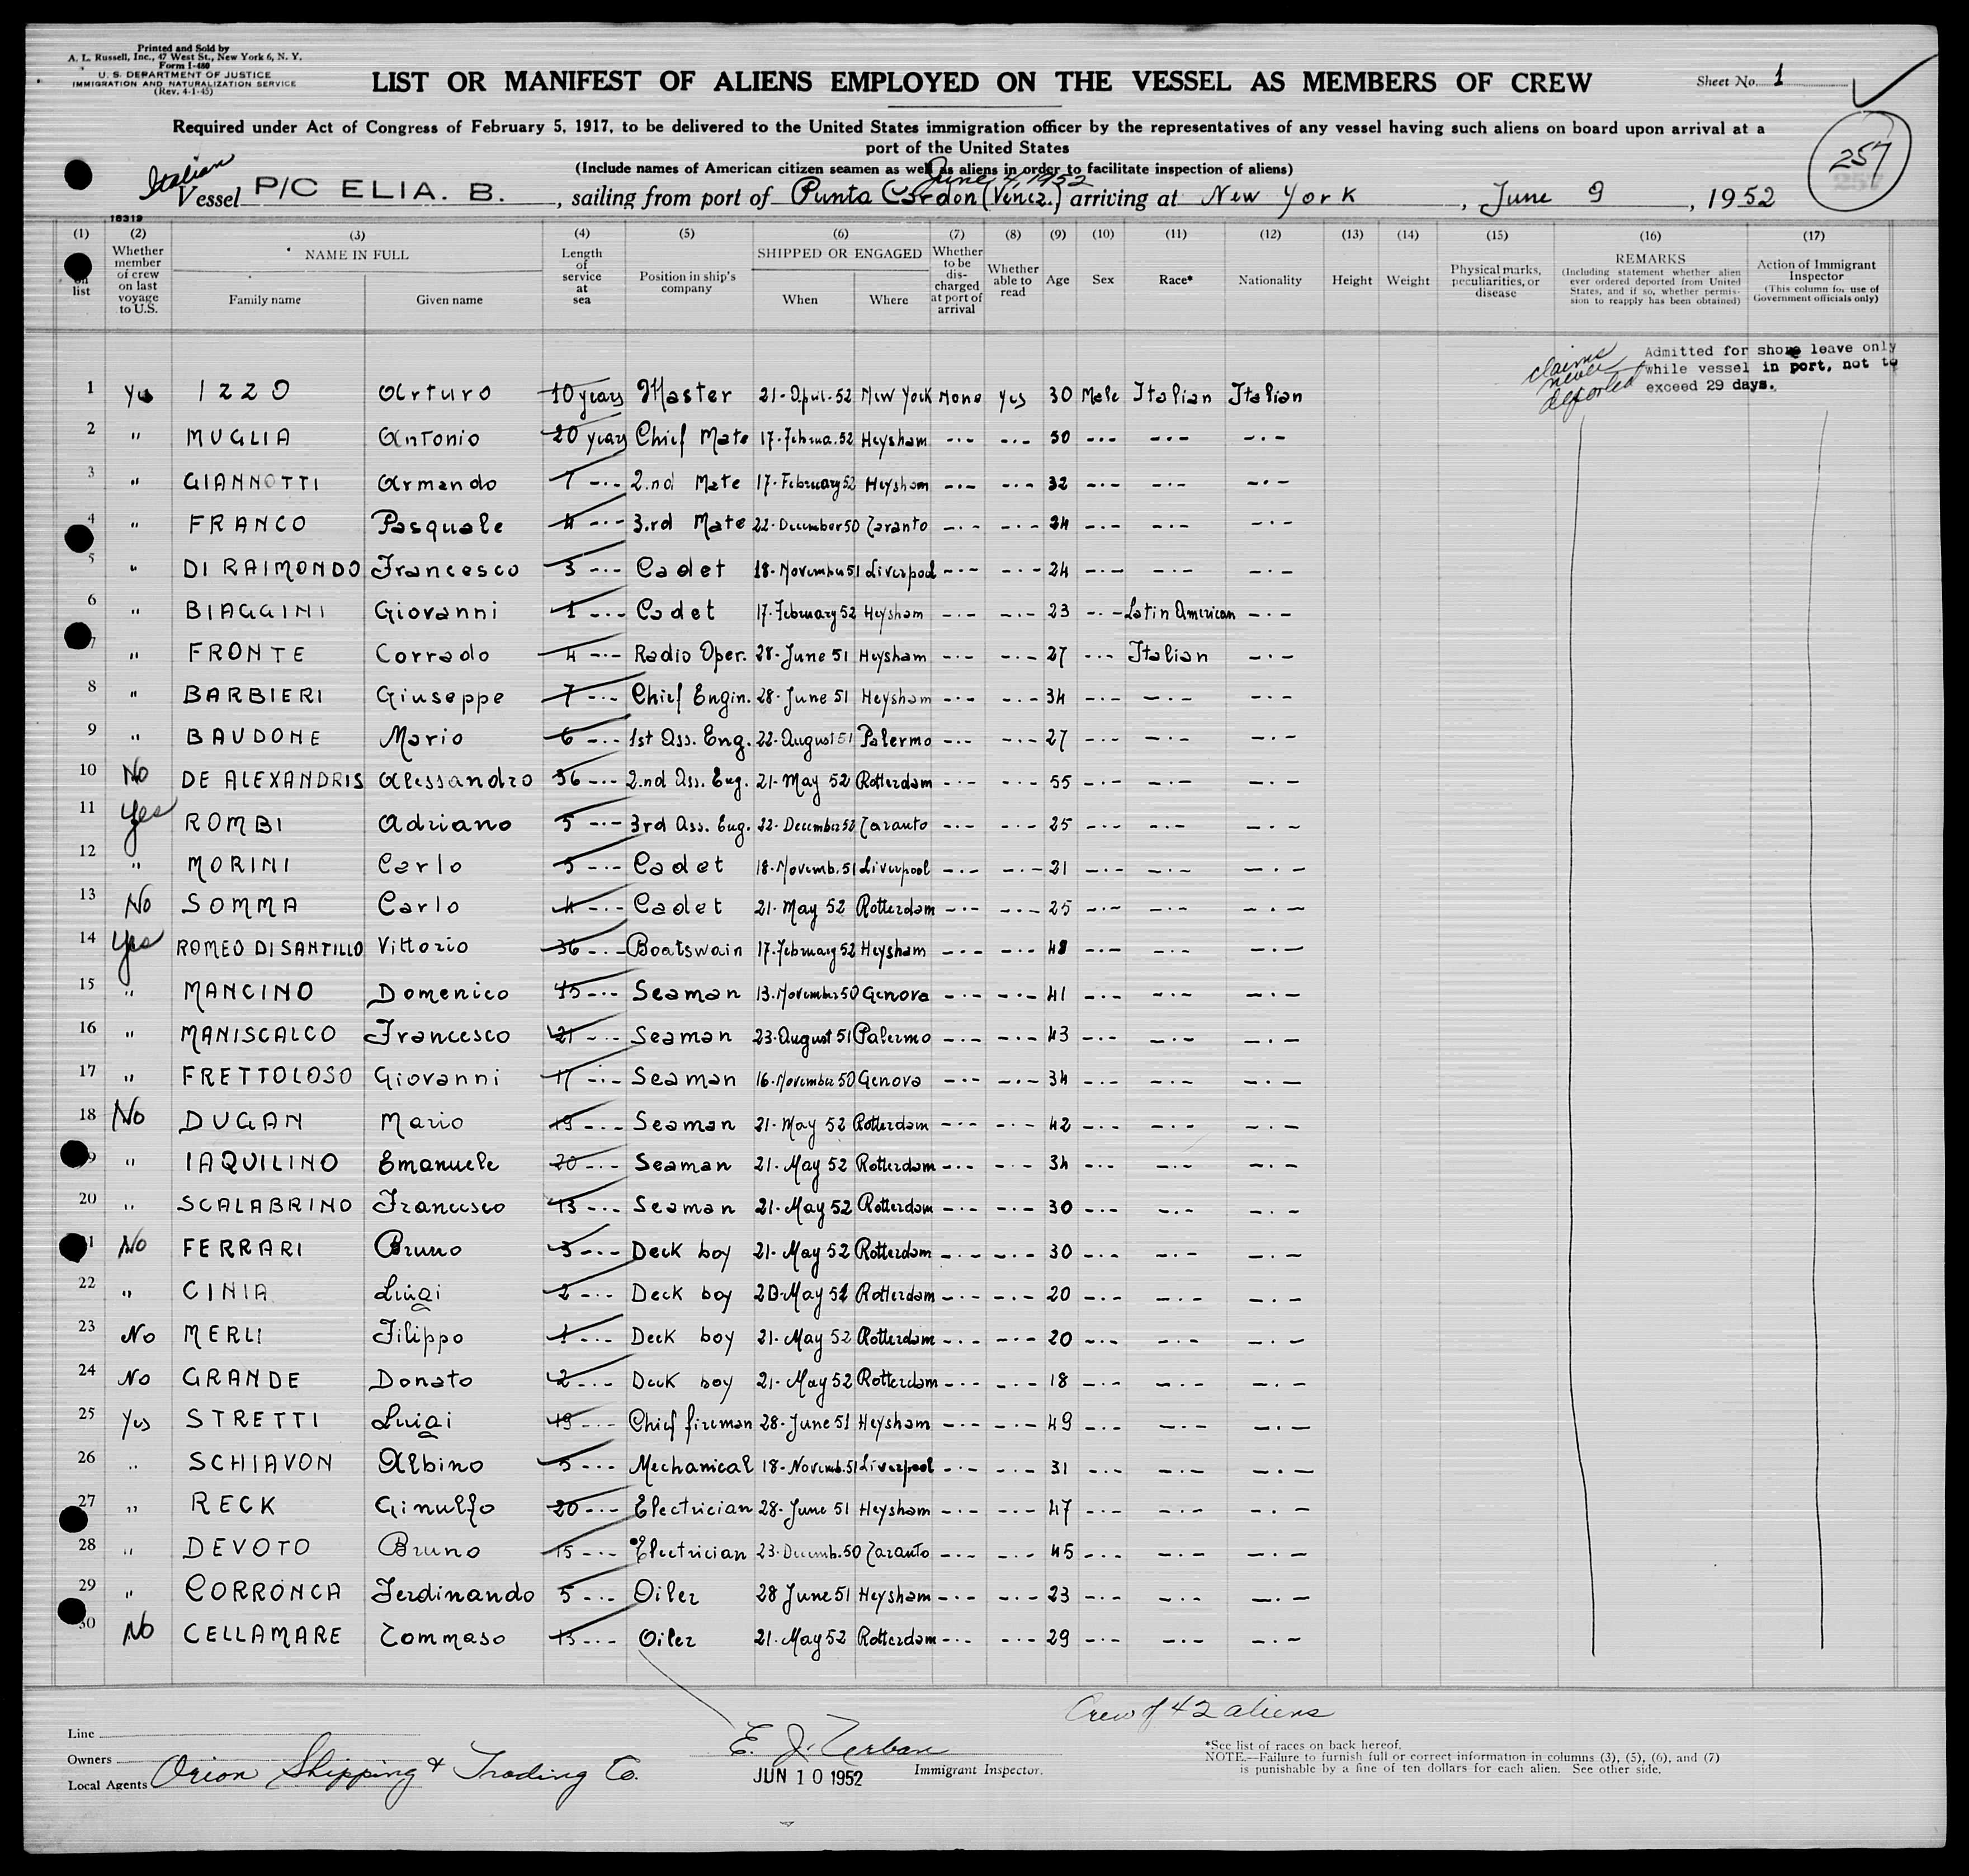 Printed and Sold by
A. L. Russell, Inc., 47 West St., New York 6, N. Y.
Form I-480
U. S. DEPARTMENT OF JUSTICE
IMMIGRATION AND NATURALIZATION SERVICE
(Rev. 4-1-45)
LIST OR MANIFEST OF ALIENS EMPLOYED ON THE VESSEL AS MEMBERS OF CREW
Sheet No. 1
Required under Act of Congress of February 5, 1917, to be delivered to the United States immigration officer by the representatives of any vessel having such aliens on board upon arrival at a
port of the United States
(Include names of American citizen seamen as well as aliens in order to facilitate inspection of aliens)
257
Italian
June 4, 1952
Vessel P/C ELIA. B., sailing from port of Punta Cardon (Venez.) arriving at New York, June 9, 1952
18319
(1) (2) (3) (4) (5) (6) (7) (8) (9) (10) (11) (12) (13) (14) (15) (16) (17)
on list
Whether member of crew on last voyage to U.S.
NAME IN FULL
Family name Given name
Length of service at sea
Position in ship's company
SHIPPED OR ENGAGED
When Where
Whether to be discharged at port of arrival
Whether able to read
Age Sex Race* Nationality Height Weight
Physical marks, peculiarities, or disease
REMARKS
(Including statement whether alien ever ordered deported from United States, and if so, whether permission to reapply has been obtained)
Action of Immigrant Inspector
(This column for use of Government officials only)
claims never deported
Admitted for shore leave only
while vessel in port, not to
exceed 29 days.
1 Yes IZZO Arturo 10 years Master 21-April-52 New York None Yes 30 Male Italian Italian
2 " MUGLIA Antonio 20 years Chief Mate 17-Februa.52 Heysham -·- -·- 50 -·- -·- -·-
3 " GIANNOTTI Armando 7 -·- 2.nd Mate 17-February 52 Heysham -·- -·- 32 -·- -·- -·-
4 " FRANCO Pasquale 4 -·- 3.rd Mate 22-December 50 Taranto -·- -·- 24 -·- -·- -·-
5 " DI RAIMONDO Francesco 3 -·- Cadet 18-November 51 Liverpool -·- -·- 24 -·- -·- -·-
6 " BIAGGINI Giovanni 1 -·- Cadet 17-February 52 Heysham -·- -·- 23 -·- Latin American -·-
7 " FRONTE Corrado 4 -·- Radio Oper. 28-June 51 Heysham -·- -·- 27 -·- Italian -·-
8 " BARBIERI Giuseppe 7 -·- Chief Engin. 28-June 51 Heysham -·- -·- 34 -·- -·- -·-
9 " BAUDONE Mario 6 -·- 1st Ass. Eng. 22-August 51 Palermo -·- -·- 27 -·- -·- -·-
10 No DE ALEXANDRIS Alessandro 36 -·- 2.nd Ass. Eng. 21-May 52 Rotterdam -·- -·- 55 -·- -·- -·-
11 Yes ROMBI Adriano 5 -·- 3rd Ass. Eng. 22-December Taranto -·- -·- 25 -·- -·- -·-
12 " MORINI Carlo 5 -·- Cadet 18-Novemb.51 Liverpool -·- -·- 21 -·- -·- -·-
13 No SOMMA Carlo 4 -·- Cadet 21-May 52 Rotterdam -·- -·- 25 -·- -·- -·-
14 Yes ROMEO DI SANTILLO Vittorio 36 -·- Boatswain 17-February 52 Heysham -·- -·- 48 -·- -·- -·-
15 " MANCINO Domenico 15 -·- Seaman 13-November 50 Genova -·- -·- 41 -·- -·- -·-
16 " MANISCALCO Francesco 21 -·- Seaman 23-August 51 Palermo -·- -·- 43 -·- -·- -·-
17 " FRETTOLOSO Giovanni 17 -·- Seaman 16-November 50 Genova -·- -·- 34 -·- -·- -·-
18 No DUGAN Mario 19 -·- Seaman 21-May 52 Rotterdam -·- -·- 42 -·- -·- -·-
19 " IAQUILINO Emanuele 20 -·- Seaman 21-May 52 Rotterdam -·- -·- 34 -·- -·- -·-
20 " SCALABRINO Francesco 13 -·- Seaman 21-May 52 Rotterdam -·- -·- 30 -·- -·- -·-
21 No FERRARI Bruno 3 -·- Deck boy 21-May 52 Rotterdam -·- -·- 30 -·- -·- -·-
22 " CINIA Luigi 2 -·- Deck boy May Rotterdam -·- -·- 20 -·- -·- -·-
23 No MERLI Filippo 1 -·- Deck boy 21-May 52 Rotterdam -·- -·- 20 -·- -·- -·-
24 No GRANDE Donato 2 -·- Deck boy 21-May 52 Rotterdam -·- -·- 18 -·- -·- -·-
25 Yes STRETTI Luigi 19 -·- Chief fireman 28-June 51 Heysham -·- -·- 49 -·- -·- -·-
26 " SCHIAVON Albino 5 -·- Mechanical 18-Novemb.51 Liverpool -·- -·- 31 -·- -·- -·-
27 " RECK Ginulfo 20 -·- Electrician 28-June 51 Heysham -·- -·- 47 -·- -·- -·-
28 " DEVOTO Bruno 15 -·- Electrician 23-Decemb.50 Taranto -·- -·- 45 -·- -·- -·-
29 " CORRONCA Ferdinando 5 -·- Oiler 28 June 51 Heysham -·- -·- 23 -·- -·- -·-
30 No CELLAMARE Tommaso 13 -·- Oiler 21-May 52 Rotterdam -·- -·- 29 -·- -·- -·-
Crew of 42 aliens
Line
Owners
Local Agents Orion Shipping & Trading Co.
E. J. Zerban
JUN 10 1952 Immigrant Inspector.
*See list of races on back hereof.
NOTE.—Failure to furnish full or correct information in columns (3), (5), (6), and (7)
is punishable by a fine of ten dollars for each alien. See other side.